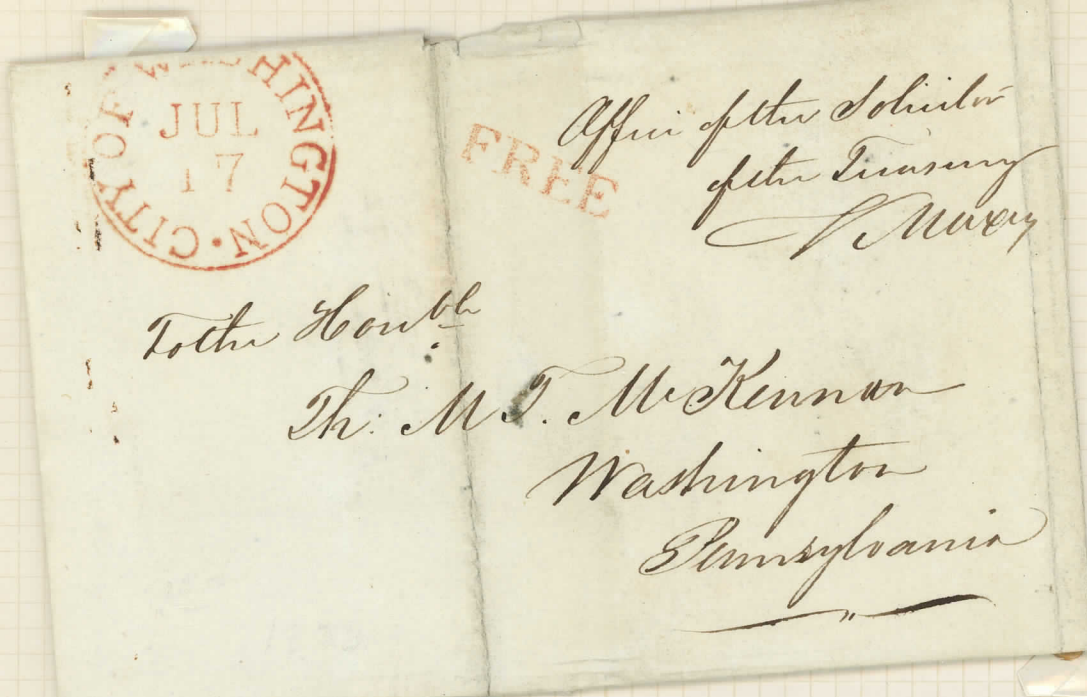 CITY OF WASHINGTON
JUL
17
FREE
Office of the Solicitor
of the Treasury
V Maxcy
To the Honble
Th: M T. McKennan
Washington
Pennsylvania